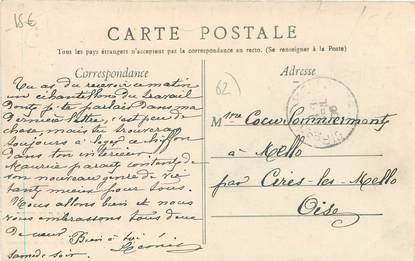 18€
CARTE POSTALE
Tous les pays étrangers n'acceptent pas la correspondance au recto. (Se renseigner à la Poste)
Correspondance
Adresse
62
Tu as dû recevoir ce matin
un échantillon du travail
dont je te parlais dans ma
dernière lettre, c'est peu de
chose, mais tu trouveras
toujours à loger ce chiffon
dans ton intérieur.
parait content de
son nouveau genre de vie
tant mieux pour tous.
Nous allons bien et nous
vous embrassons tous deux
de cœur.
Bien à toi
Léonie
samedi soir.
Mme
à Mello
par Cires-les-Mello
Oise